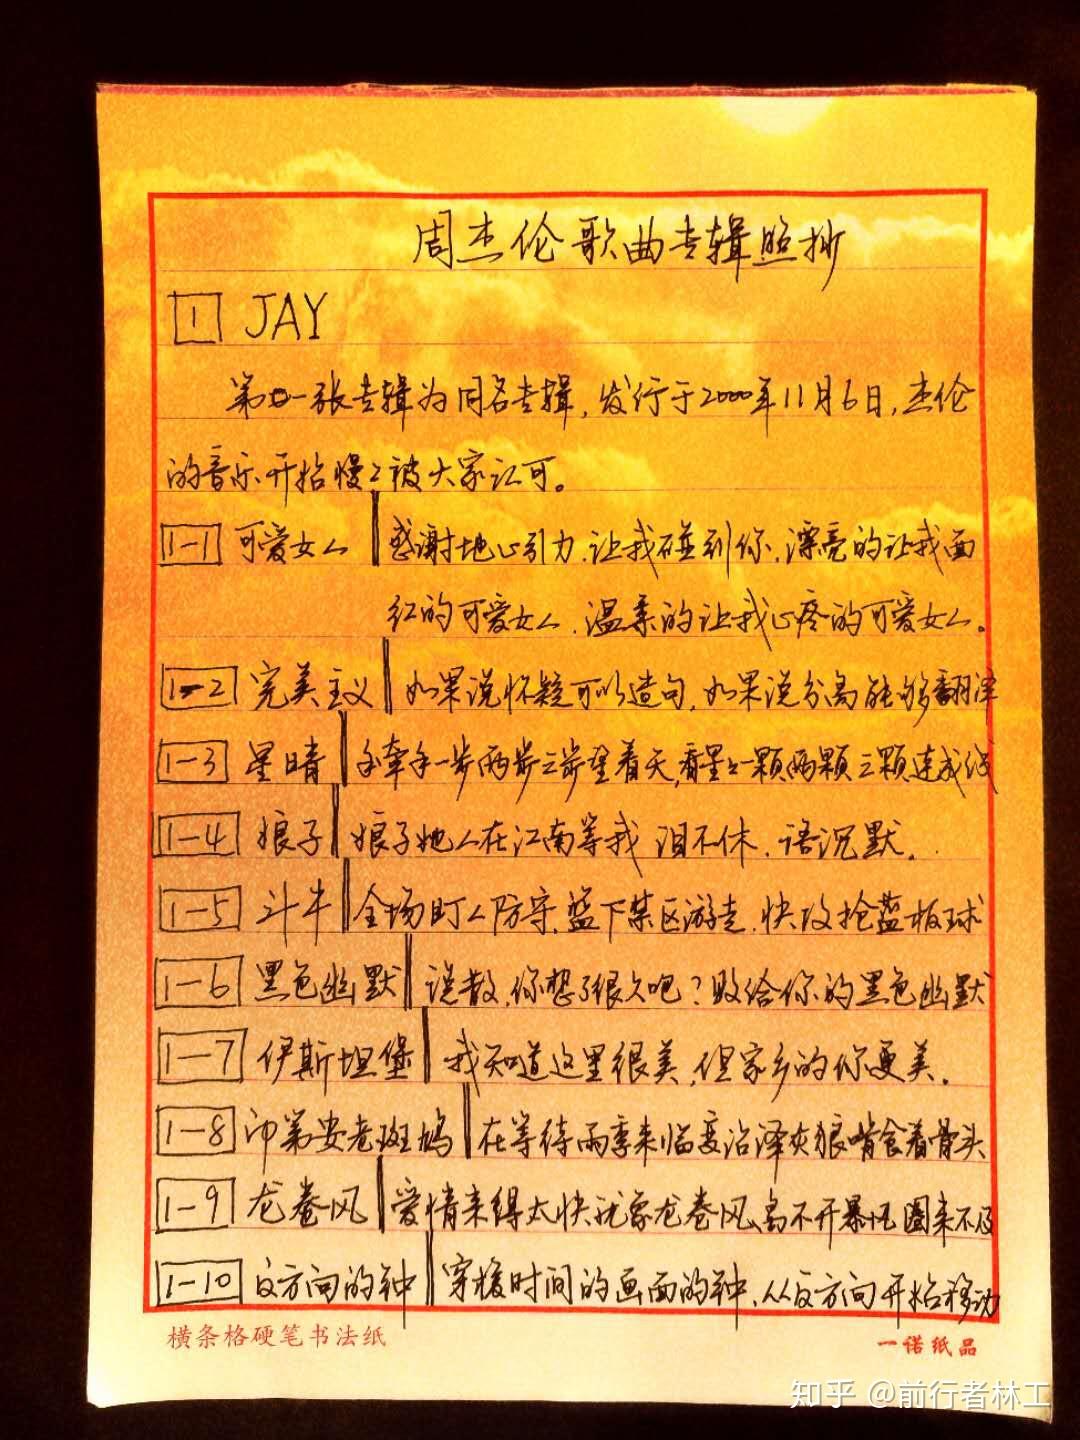 周杰伦歌曲专辑照抄
1 JAY
第一张专辑为同名专辑,发行于2000年11月6日,杰伦
的音乐开始慢々被大家认可。
1-1 可爱女人 感谢地心引力,让我碰到你,漂亮的让我面
红的可爱女人,温柔的让我心疼的可爱女人。
1-2 完美主义 如果说怀疑可以造句,如果说分离能够翻译
1-3 星晴 手牵手一步两步三步望着天,看星々一颗两颗三颗连成线
1-4 娘子 娘子她人在江南等我 泪不休,语沉默。
1-5 斗牛 全场盯人防守,篮下禁区游走,快攻抢篮板球
1-6 黑色幽默 说散,你想了很久吧?败给你的黑色幽默
1-7 伊斯坦堡 我知道这里很美,但家乡的你更美。
1-8 印第安老斑鸠 在等待雨季来临变沼泽灰狼啃食着骨头
1-9 龙卷风 爱情来得太快就象龙卷风,离不开暴风圈来不及
1-10 反方向的钟 穿梭时间的画面的钟,从反方向开始移动
横条格硬笔书法纸
一诺纸品
知乎 @前行者林工